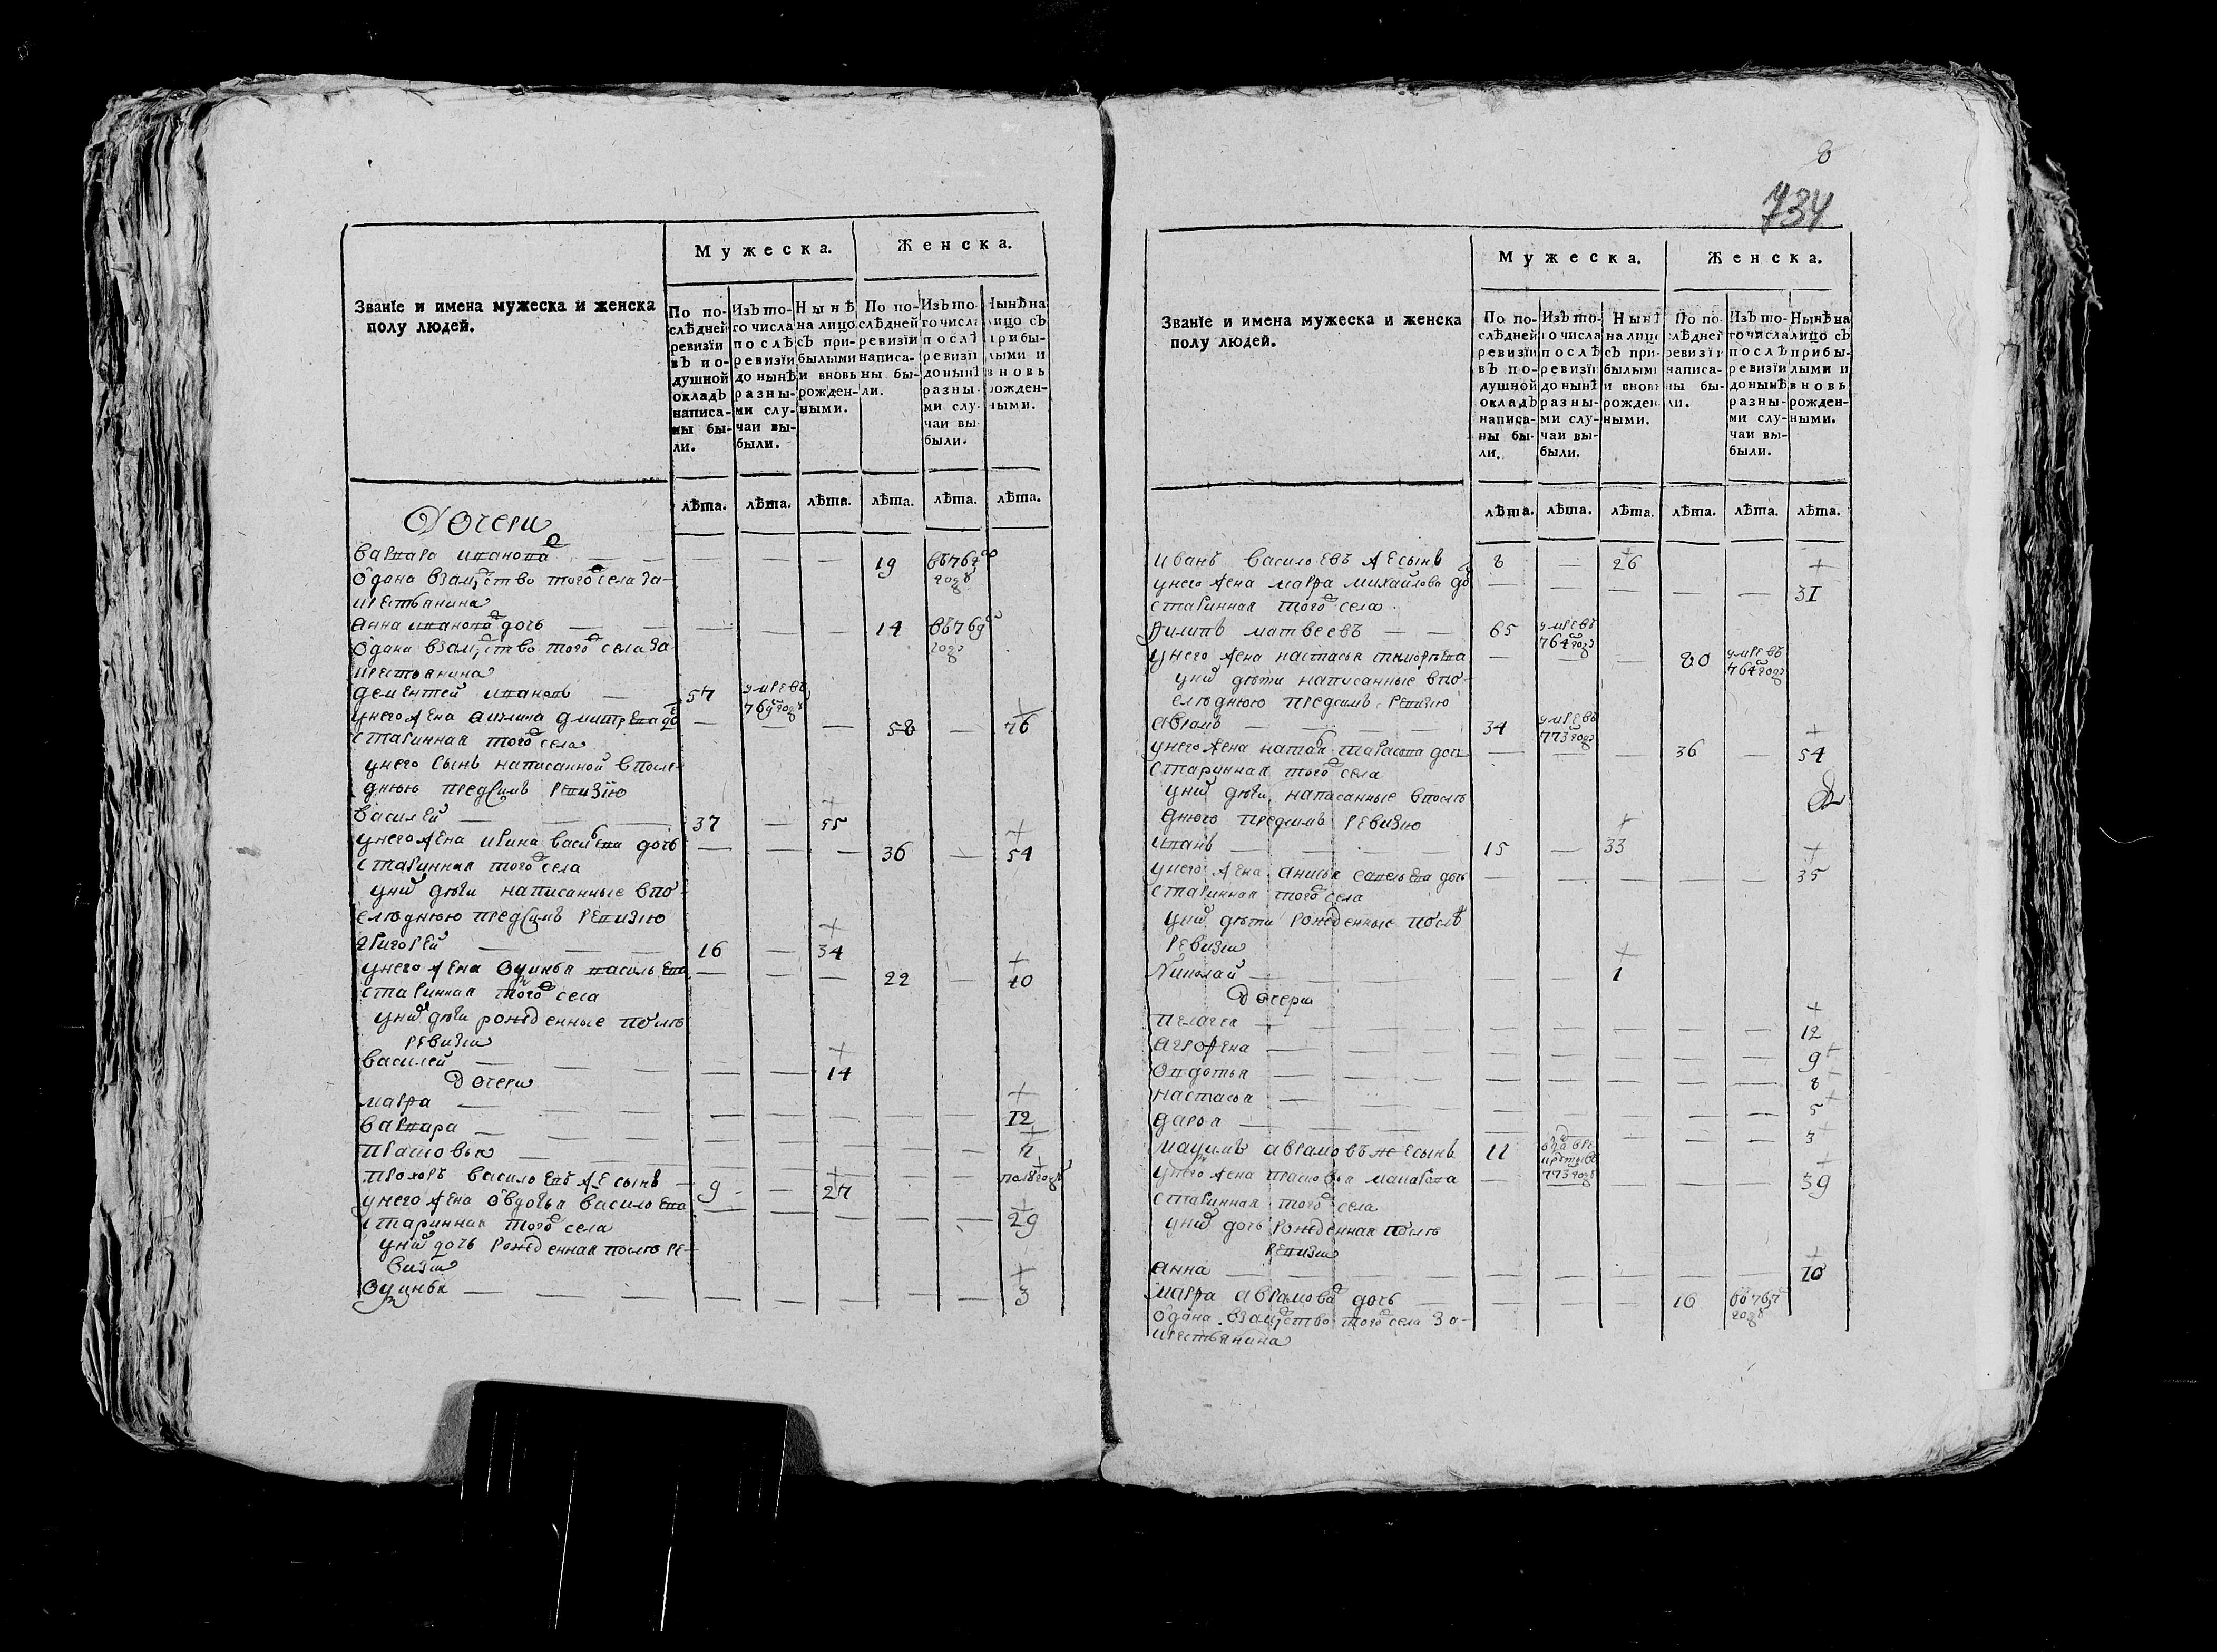 8
734
Мужеска.
Женска.
Званїе и имена мужеска и женска
полу людей.
По по-
слѣдней
ревизїи
въ по-
душной
окладъ
написа-
ны бы-
ли.
Изъ то-
го числа
послѣ
ревизїи
до нынѣ
разны-
ми слу-
чаи вы-
были.
Нынѣ
на лицо
съ при-
былыми
и вновь
рожден-
ными.
По по-
слѣдней
ревизїи
написа-
ны бы-
ли.
Изъ то-
го числа
послѣ
ревизїи
до нынѣ
разны-
ми слу-
чаи вы-
были.
Нынѣ на
лицо съ
прибы-
лыми и
вновь
рожден-
ными.
лѣта. лѣта. лѣта. лѣта. лѣта. лѣта.
Дочери
варвара иванова 19
одана взамуство того села за
крестьянина
анна иванова дочь 14
одана взамуство того села за
крестьянина
дементей ивановъ 57 умре въ 769 году
у него жена дмитрева до 58 76
старинная того села
у него сынъ написанной в после
днюю предсимъ ревизию
василей 37 55
у него жена ирина васильева дочь 36 54
старинная того села
у них дети написанные в по
следнюю предсимъ ревизию
григорей 16 34
у него жена васильева 22 40
старинная того села
у них дети рожденные после
ревизии
василей 14
дочери
мавра 12
варвара
прасковья полугоду
прохоръ васильевъ же сынъ 9 27
у него жена овдотья васильева 29
старинная того села
у них дочь рожденная после ре
визии
3
Мужеска.
Женска.
Званїе и имена мужеска и женска
полу людей.
По по-
слѣдней
ревизїи
въ по-
душной
окладъ
написа-
ны бы-
ли.
Изъ то-
го числа
послѣ
ревизїи
до нынѣ
разны-
ми слу-
чаи вы-
были.
Нынѣ
на лицо
съ при-
былыми
и вновь
рожден-
ными.
По по-
слѣдней
ревизїи
написа-
ны бы-
ли.
Изъ то-
го числа
послѣ
ревизїи
до нынѣ
разны-
ми слу-
чаи вы-
были.
Нынѣ на
лицо съ
прибы-
лыми и
вновь
рожден-
ными.
лѣта. лѣта. лѣта. лѣта. лѣта. лѣта.
иванъ васильевъ же сынъ 8 26
у него жена мавра михайлова до 31
старинная того села
филипъ матвеевъ 65 умре въ 764 году
у него жена настасья тимофеева 80 умре въ 764 году
у них дети написанные в по
следнюю предсимъ ревизию
аврамъ 34 умре въ 773 году
у него жена наталья тарасова дочь 36 54
старинная того села
у них дети написанные в после
днюю предсимъ ревизию
иванъ 15 33
у него жена анисья савельева дочь 35
старинная того села
у них дети рожденные после
ревизии
николай 1
дочери
пелагея 12
агрофена 9
овдотья 8
настасья 5
дарья 3
аврамовъ же сынъ 11 773 году
у него жена прасковья 39
старинная того села
у них дочь рожденная после
ревизии
анна 10
мавра аврамова дочь 16
одана взамуство того села за
крестьянина